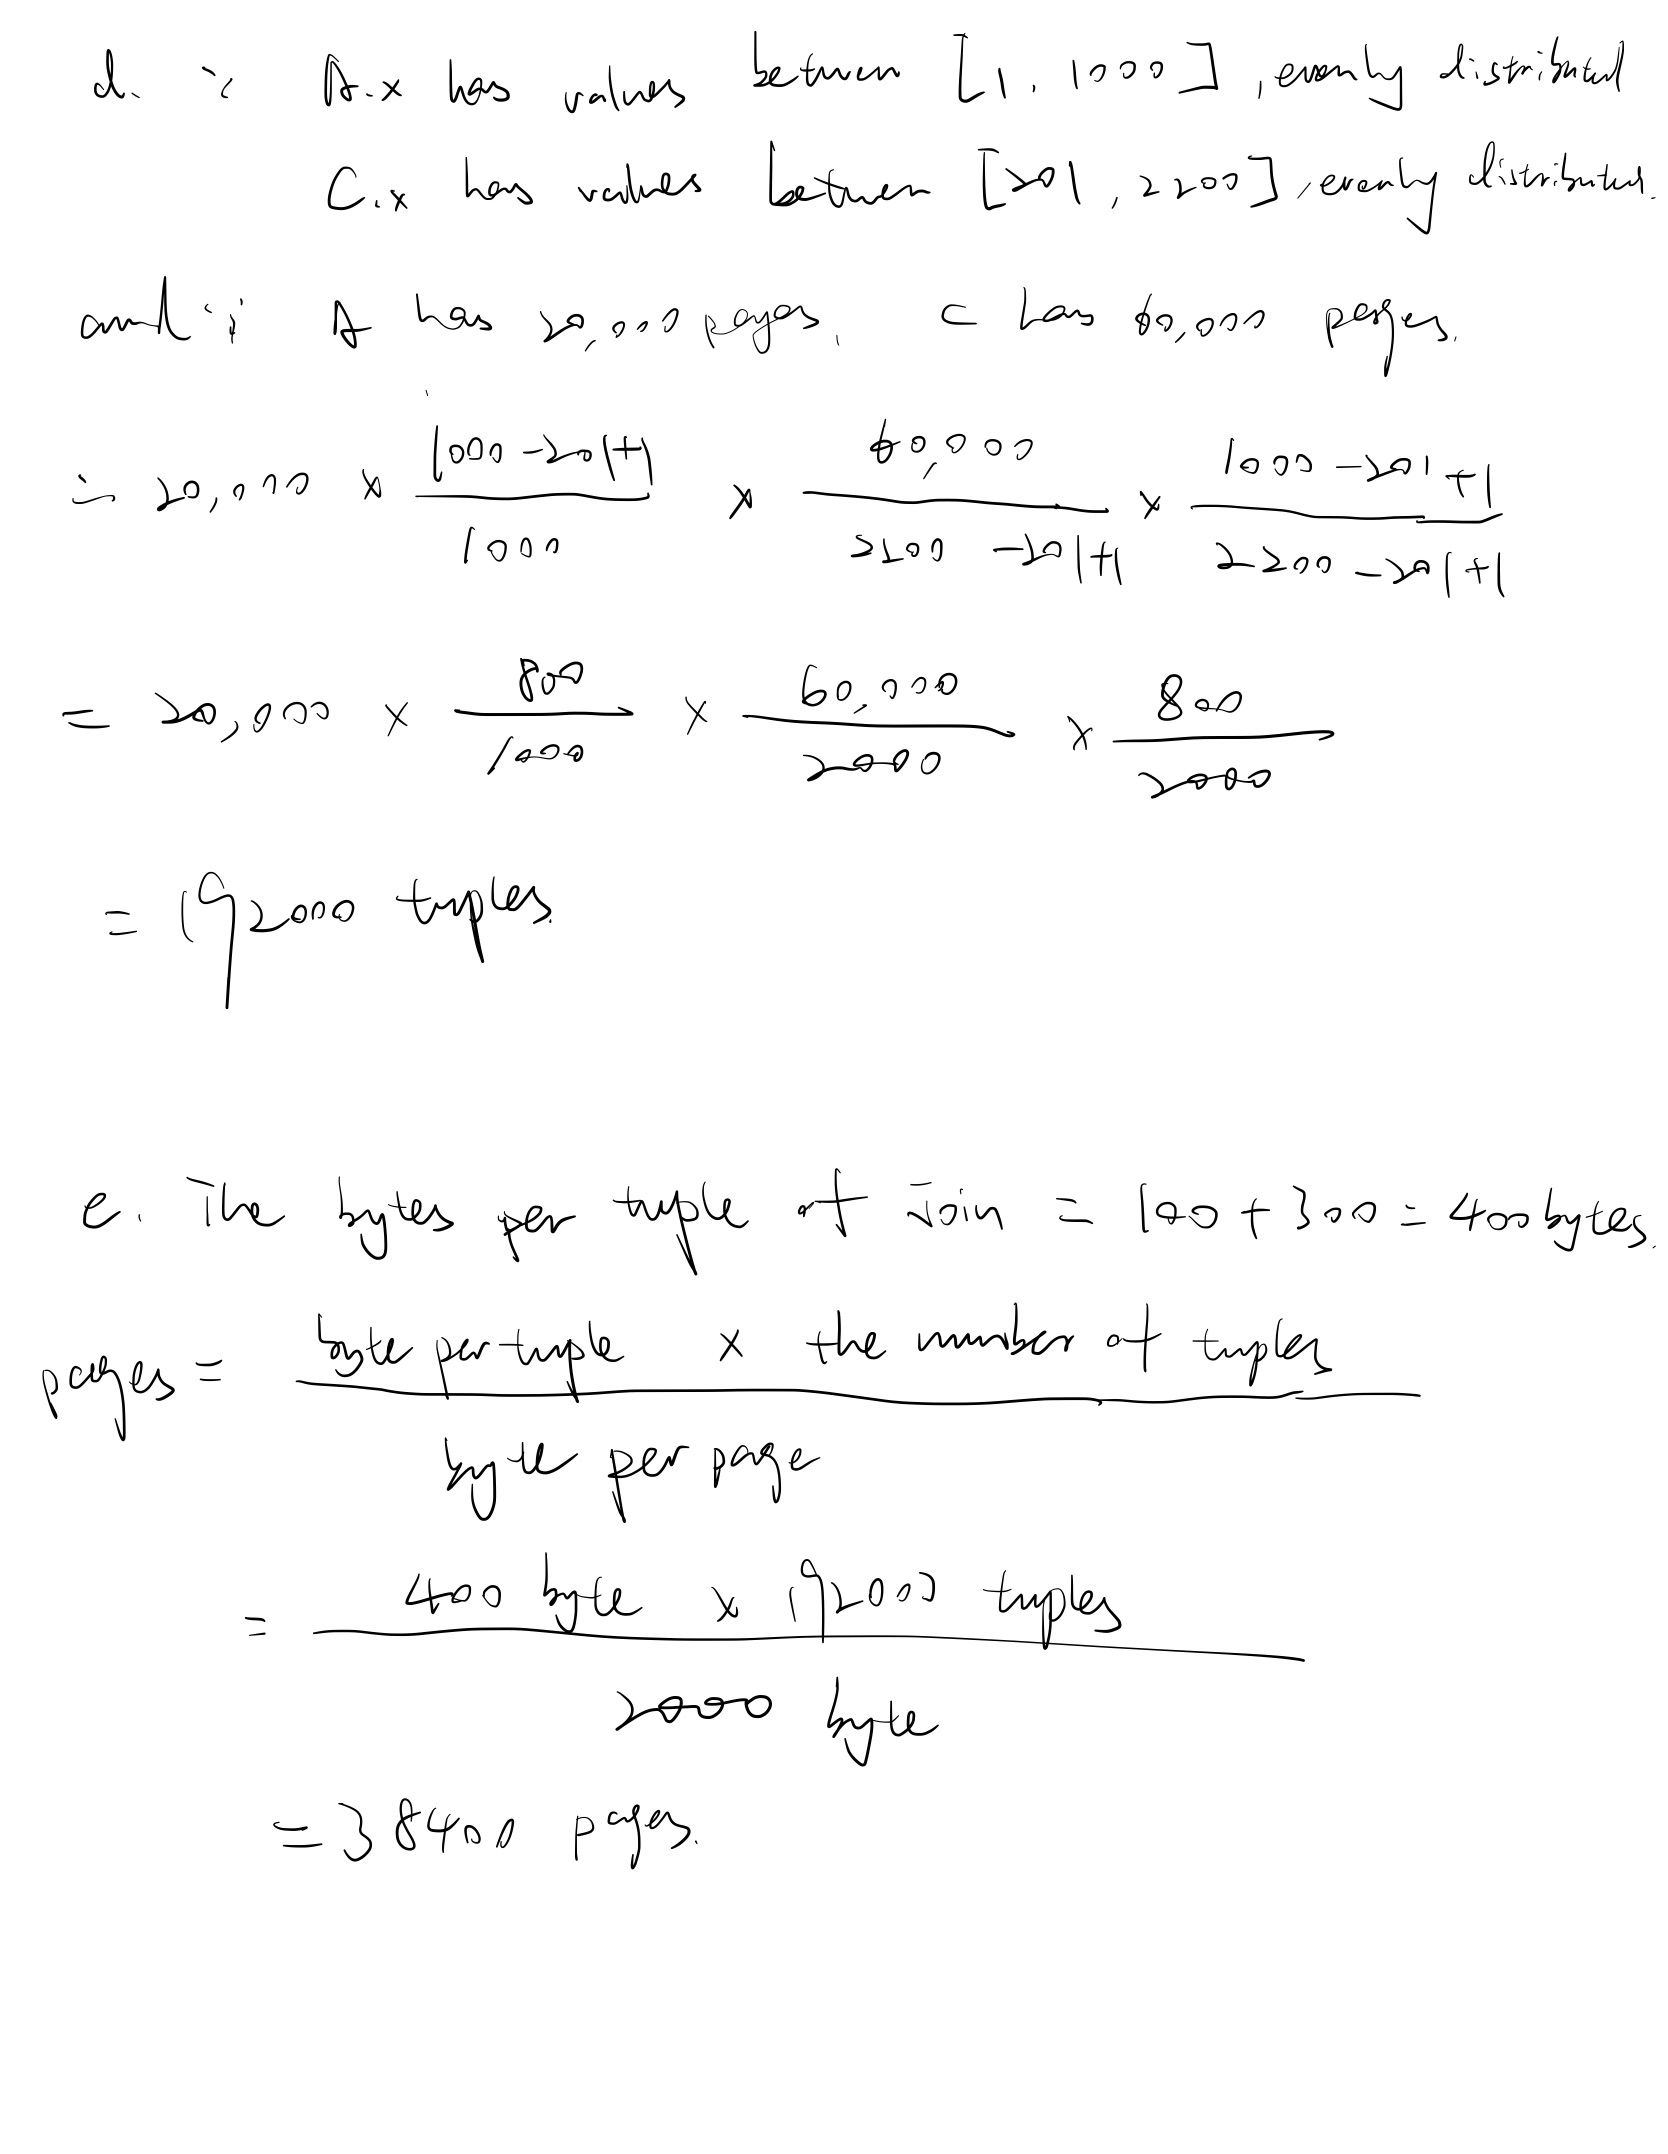 d. ∵ A.x has values between [1, 1000], evenly distributed
C.x has values between [201, 2200], evenly distributed.
and ∵ A has 20,000 pages, C has 60,000 pages.
∴ 20,000 × (1000-201+1)/1000 × 60,000/(2200-201+1) × (1000-201+1)/(2200-201+1)
= 20,000 × 800/1000 × 60,000/2000 × 800/2000
= 192000 tuples.
e. The bytes per tuple of Join = 100 + 300 = 400 bytes.
pages = byte per tuple × the number of tuples / byte per page
= 400 byte × 192000 tuples / 2000 byte
= 38400 pages.